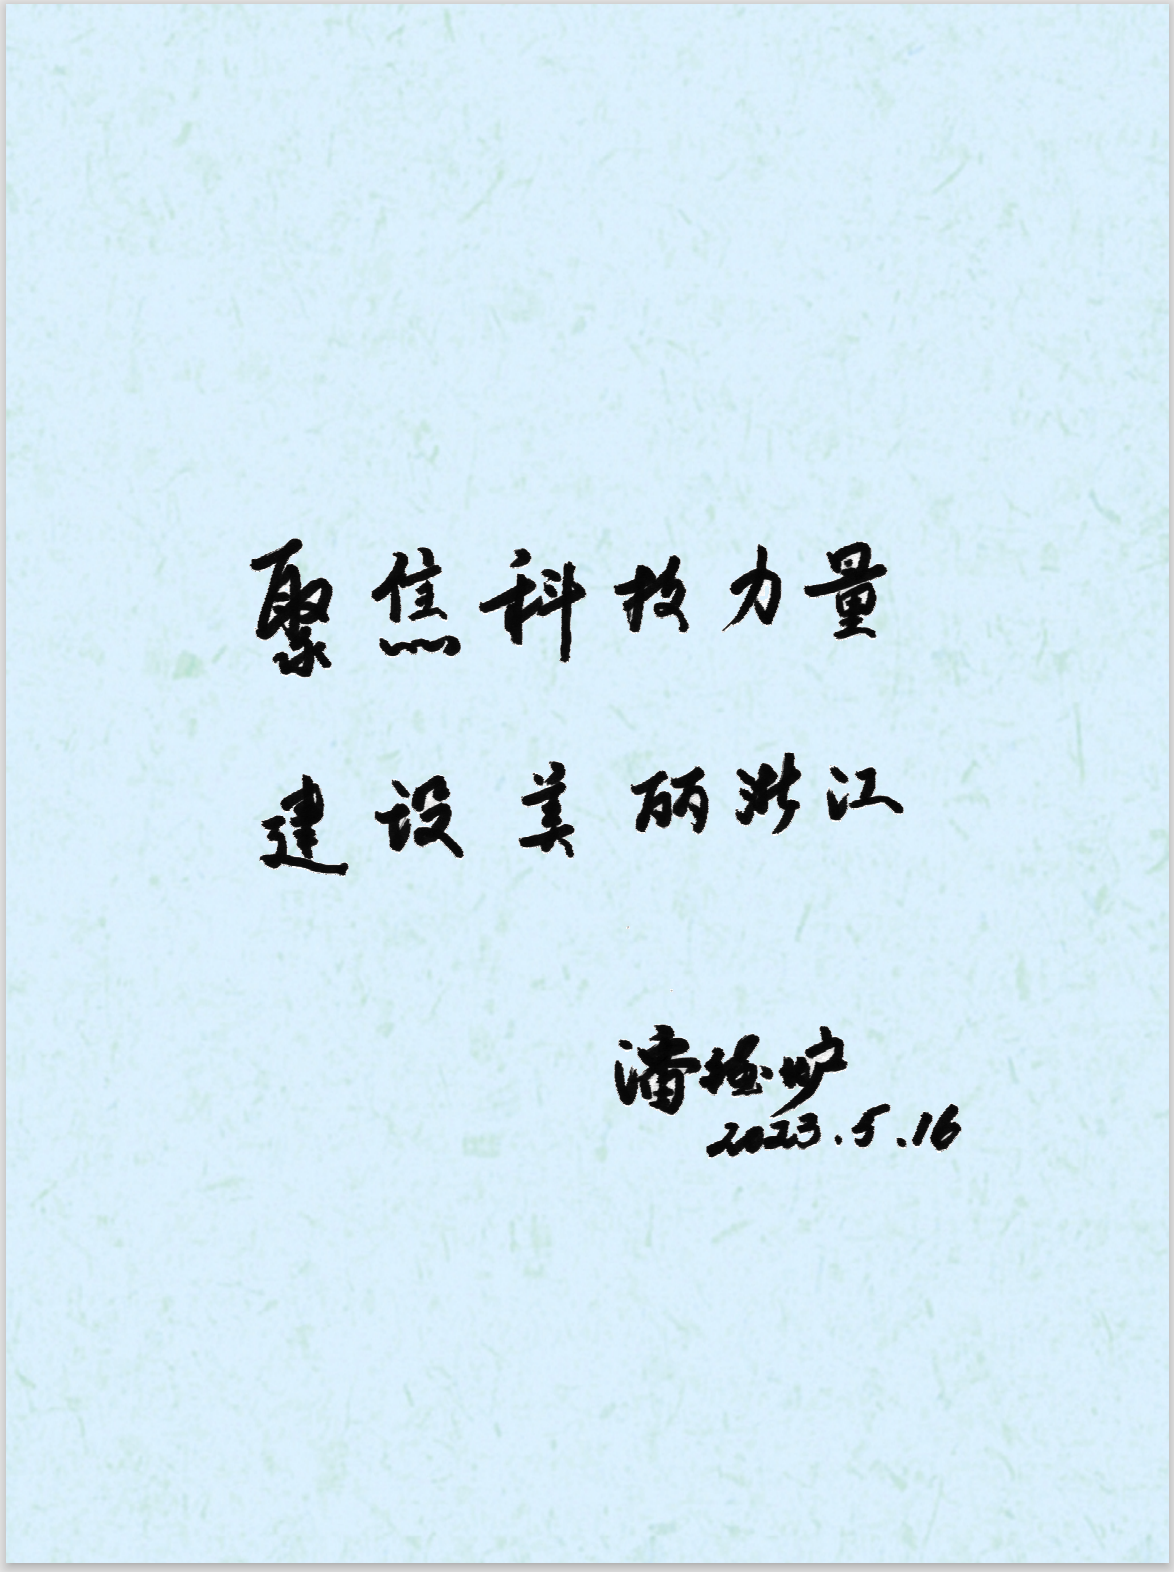 聚焦科技力量
建设美丽浙江
潘德炉
2023.5.16